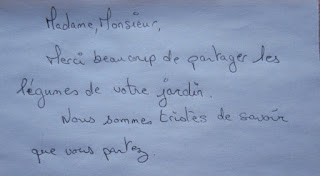 Madame, Monsieur,
Merci beaucoup de partager les
légumes de votre jardin.
Nous sommes tristes de savoir
que vous partez.